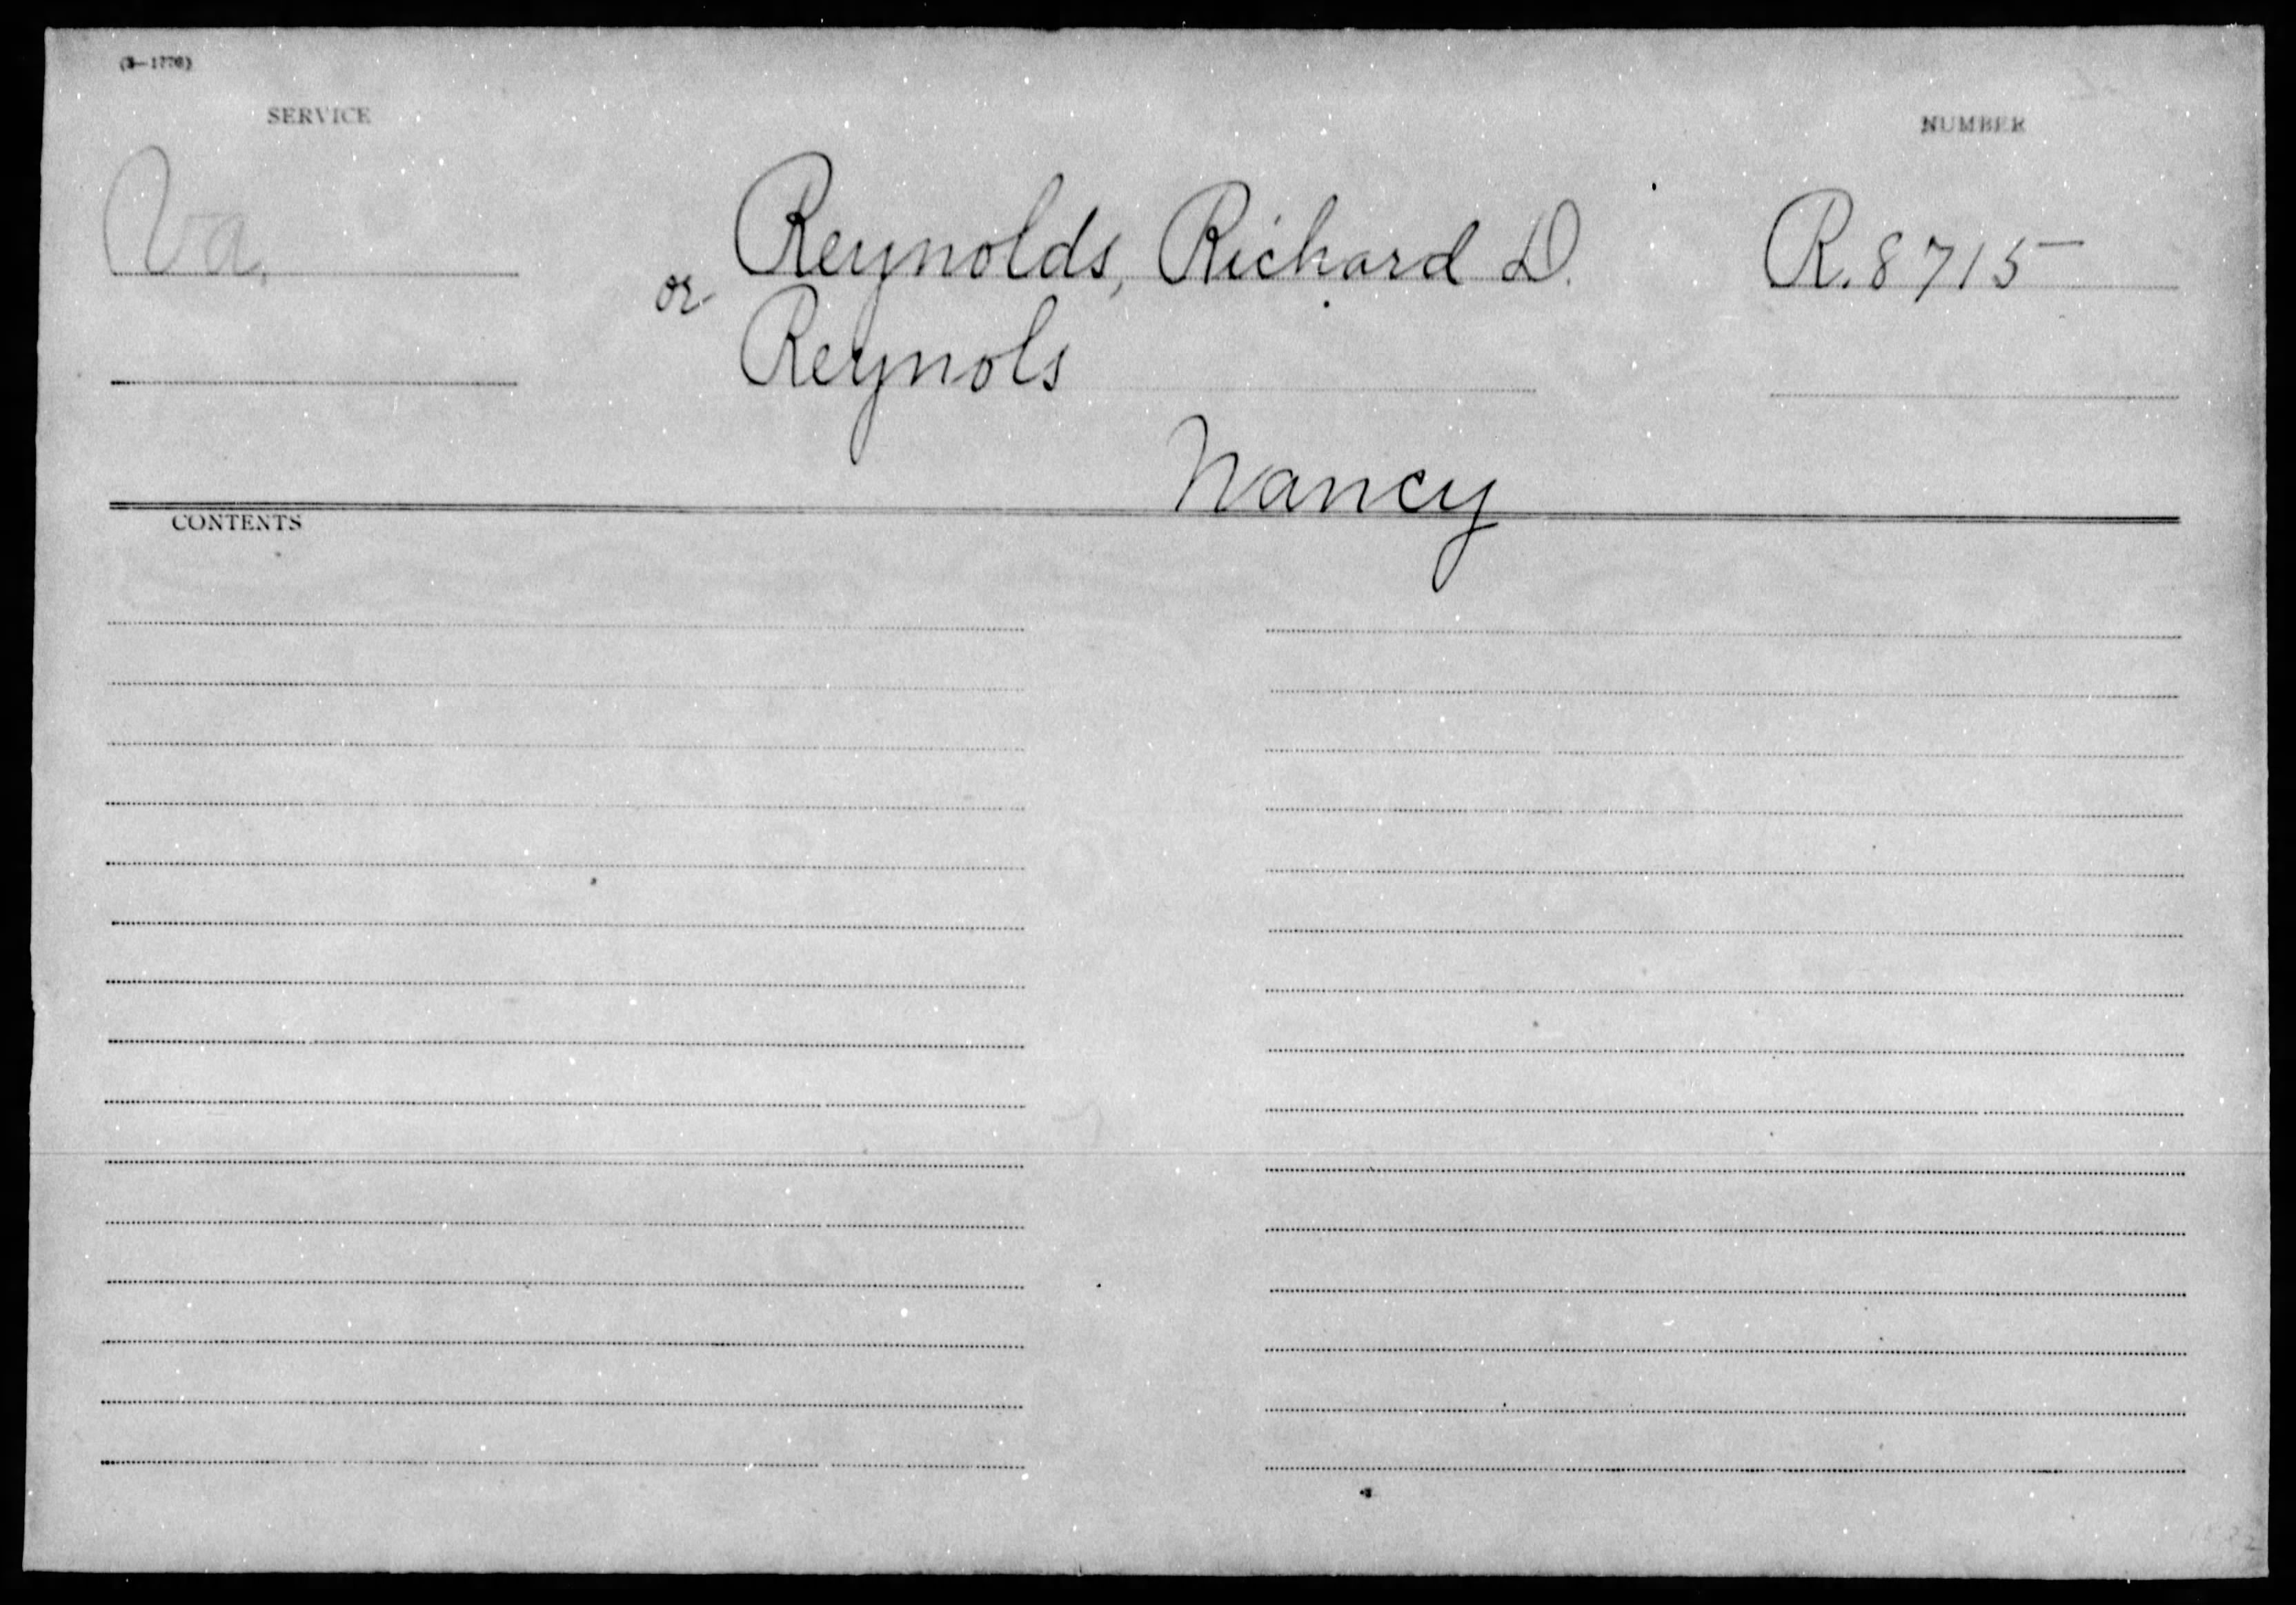 (3—1776)
SERVICE
NUMBER
Va.
Reynolds, Richard D.
R. 8715
or
Reynols
Nancy
CONTENTS